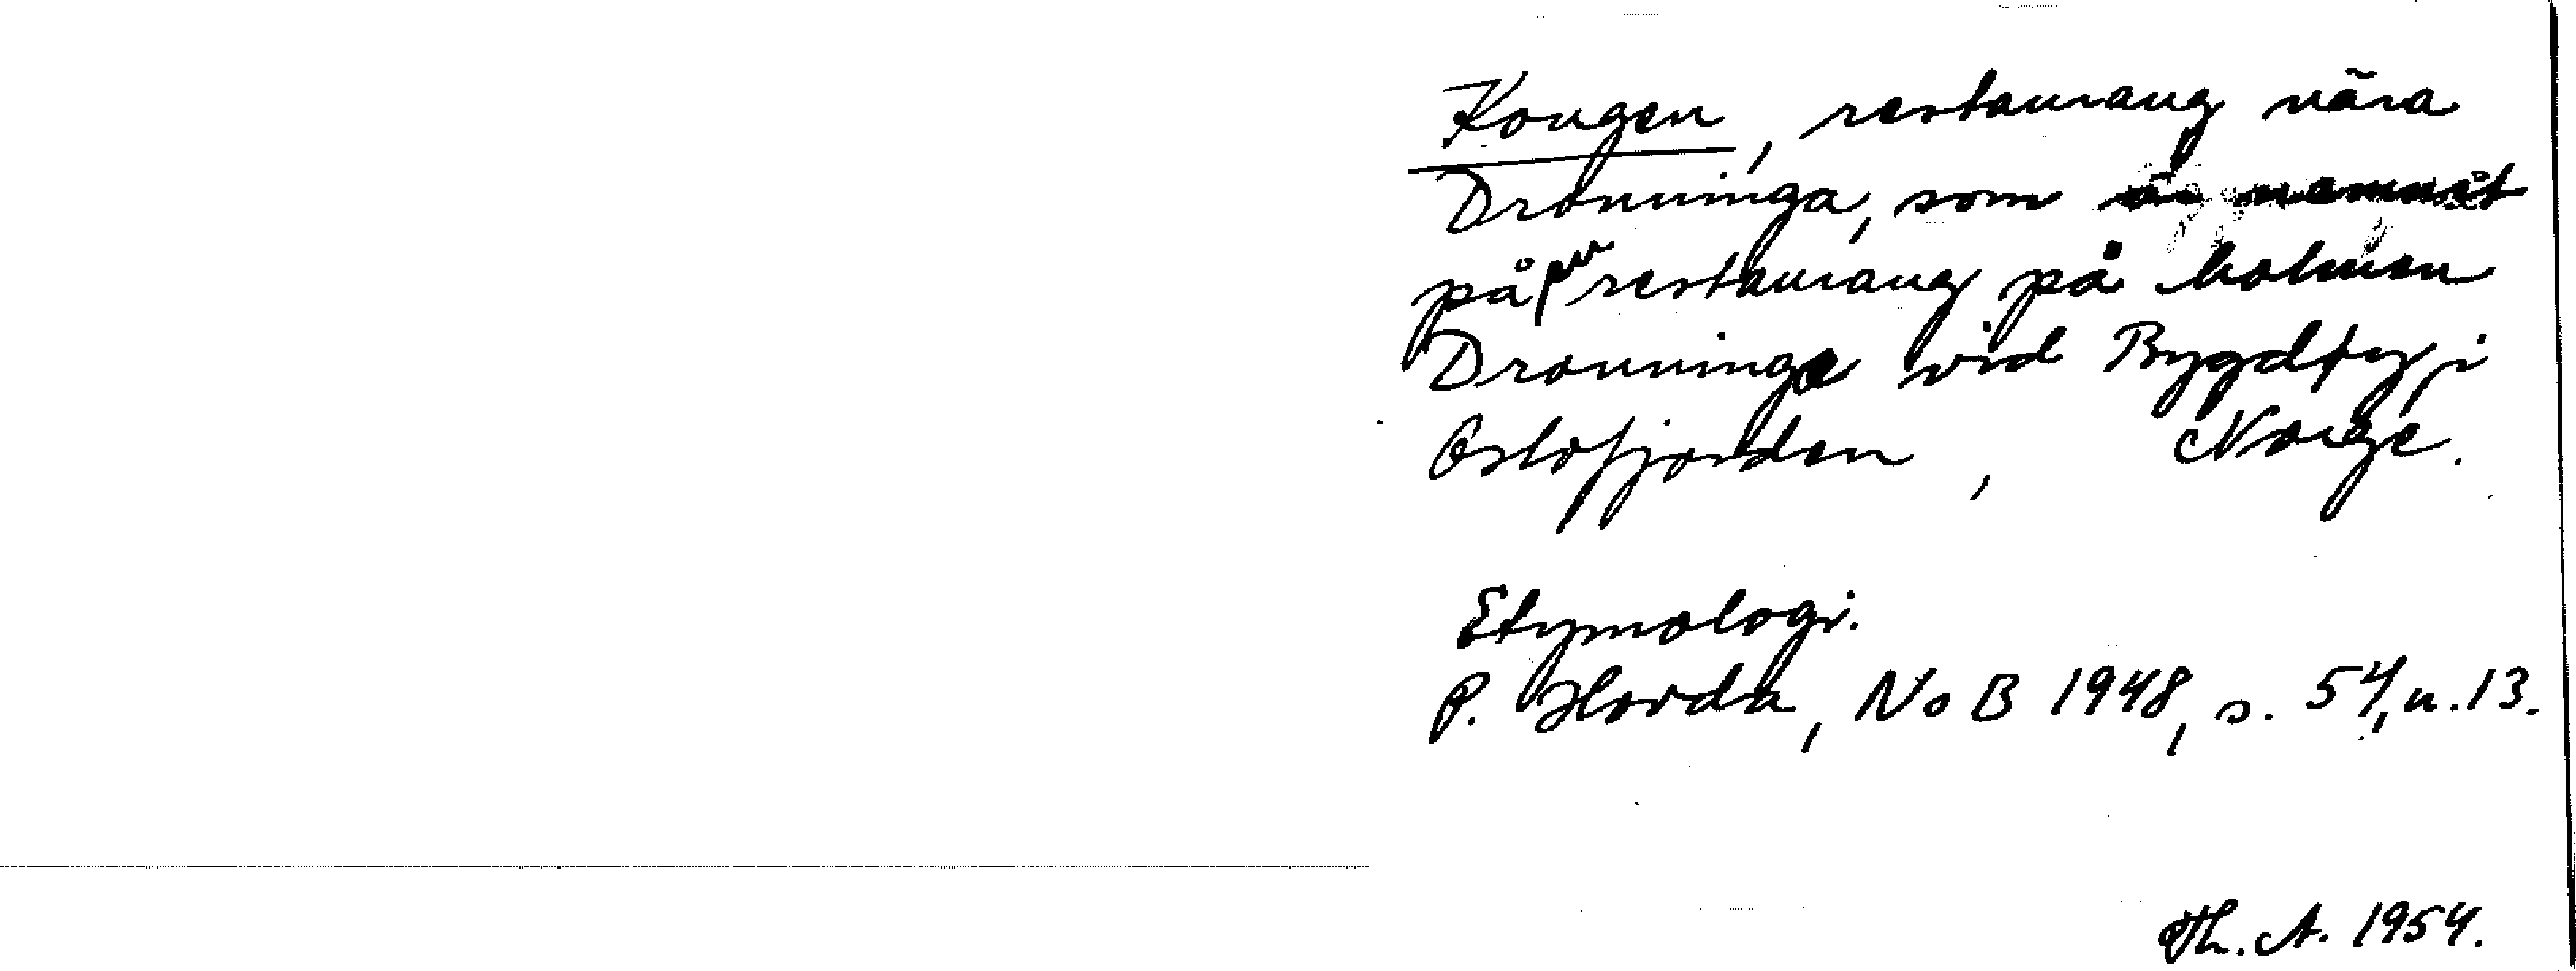 Kongen, restaurang nära
Dronninga, som är namnet
på en restaurang på holmen
Dronninga vid Bygdøy i
Oslofjorden, Norge.
Etymologi.
P. Hovda, NoB 1948, s. 54, n. 13.
Th. A. 1954.